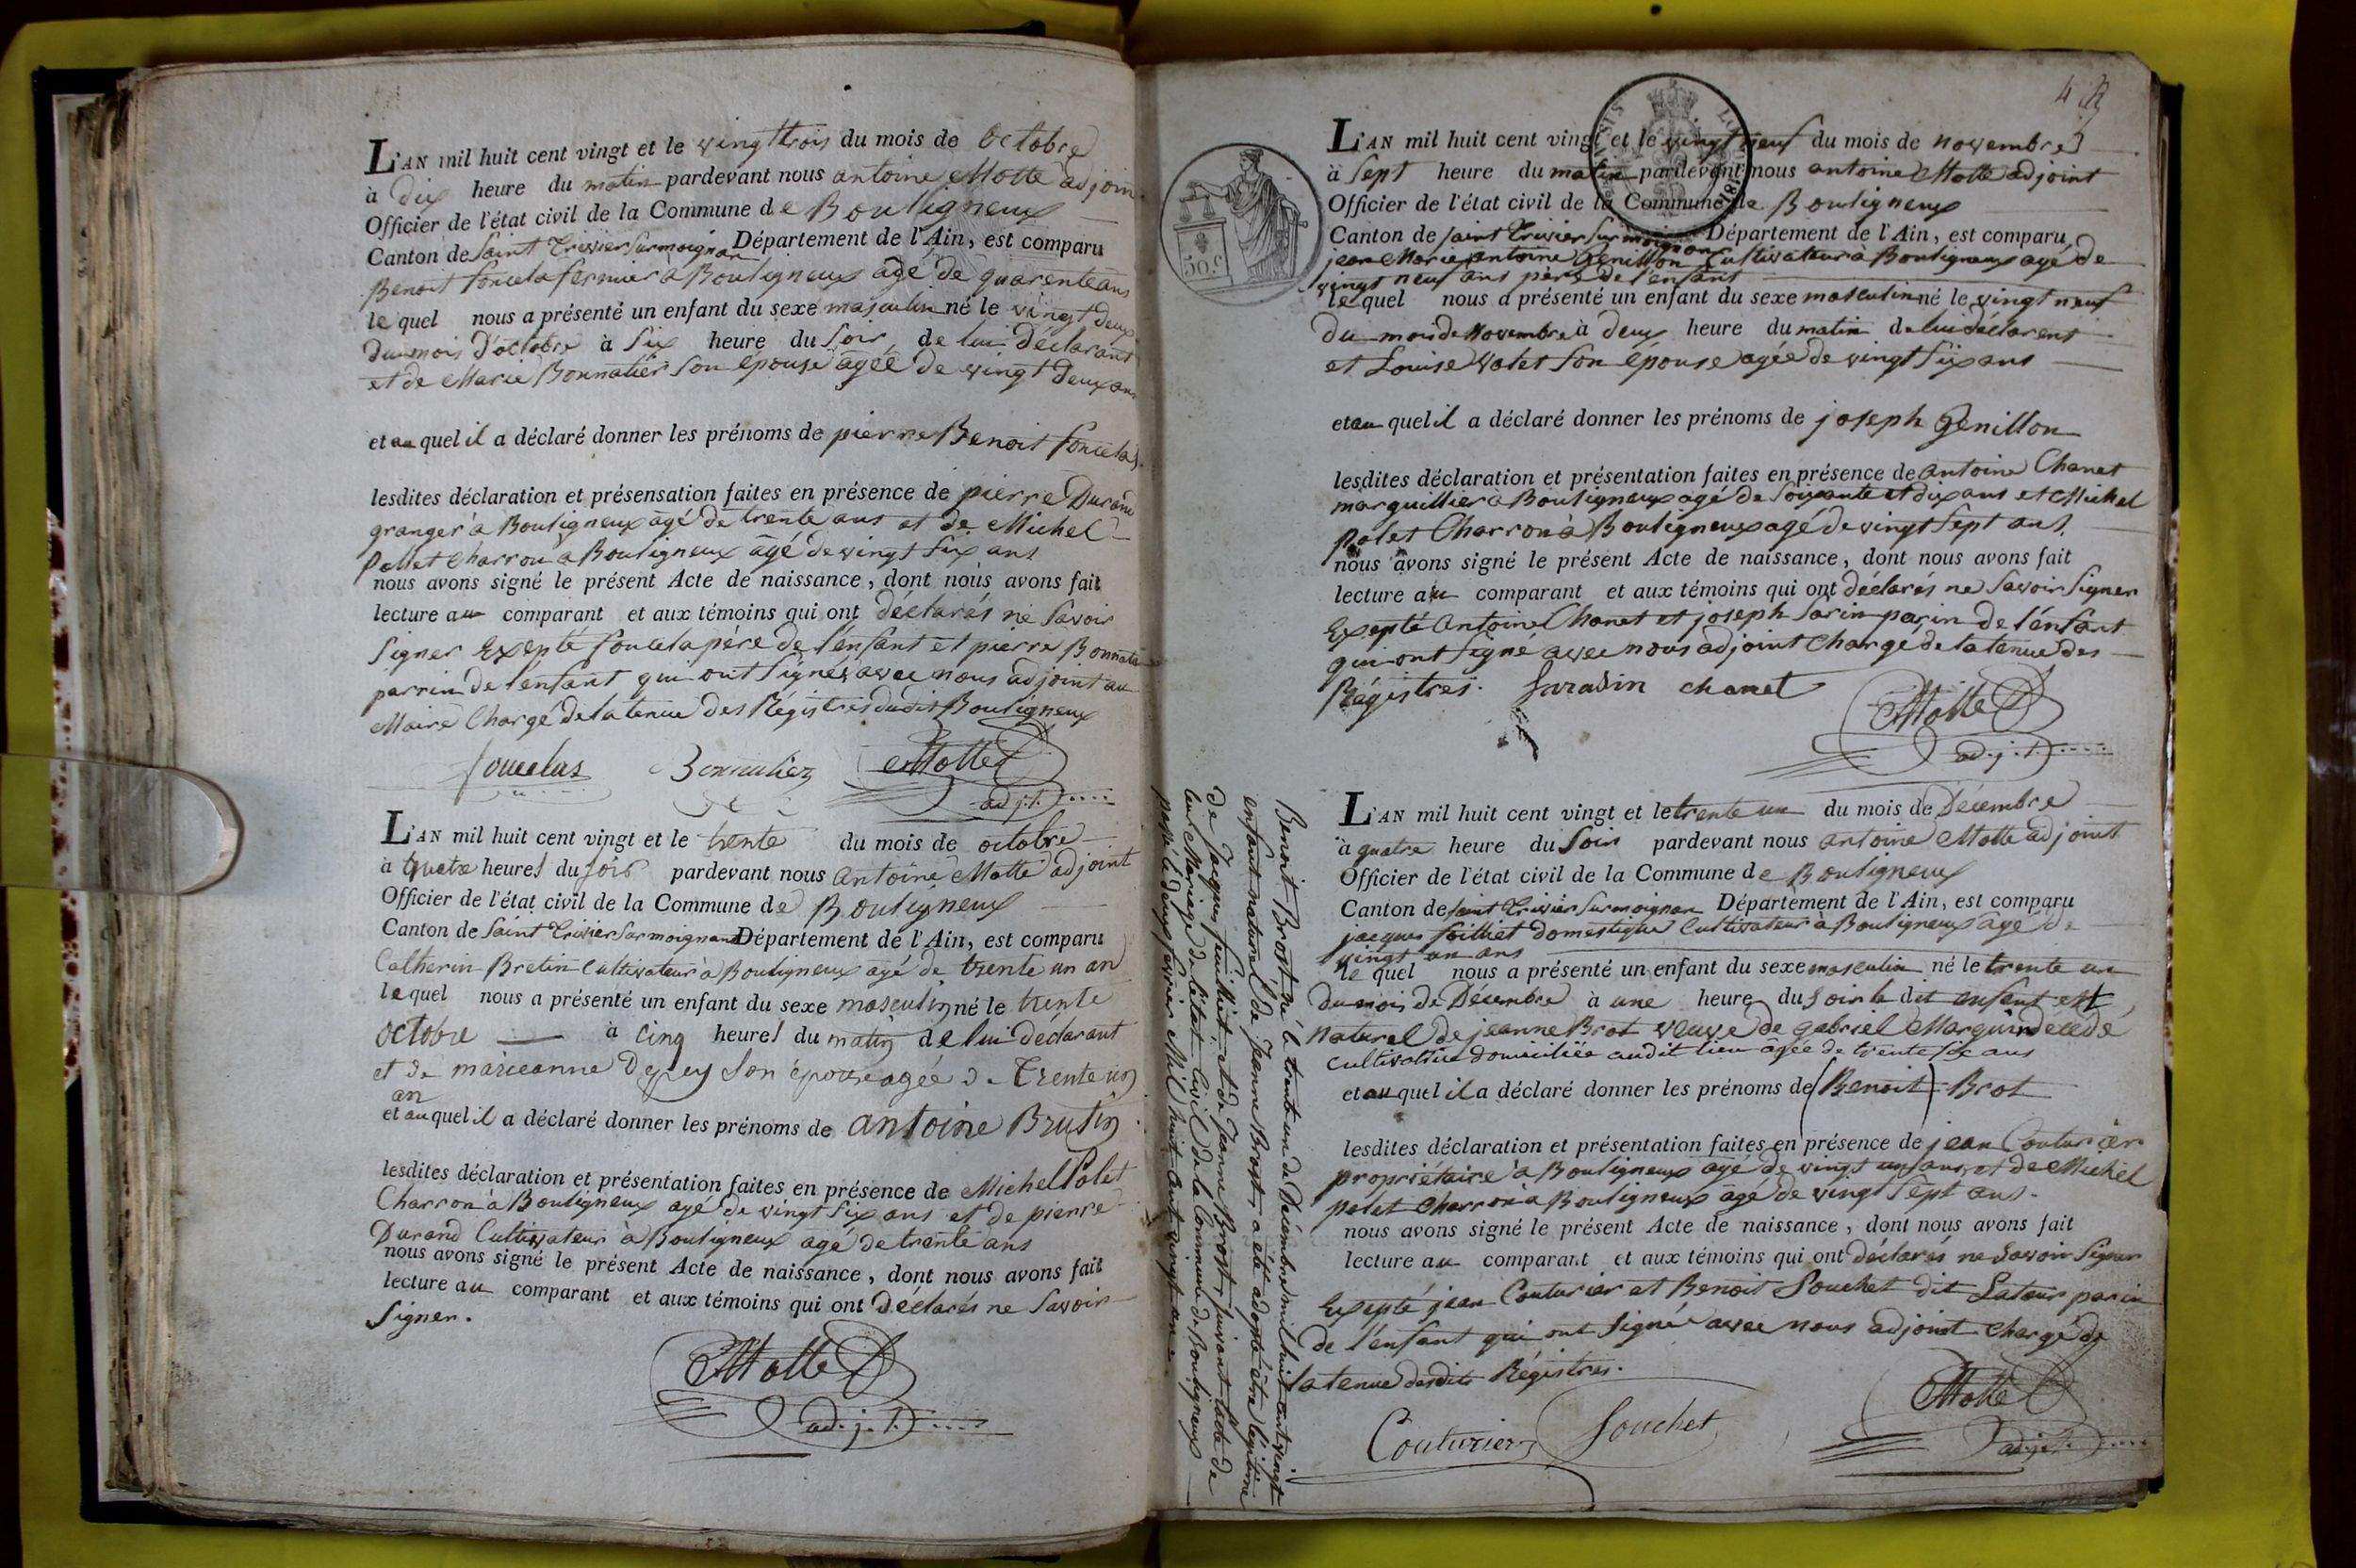 L'AN mil huit cent vingt et le vingt trois du mois de octobre
à dix heure du matin pardevant nous antoine Motte adjoin
Officier de l'état civil de la Commune de Bouligneux
Canton de Saint Trivier Sur moignan Département de l'Ain, est comparu
Benoit foncela fermier a Bouligneux âgé de quarente ans
le quel nous a présenté un enfant du sexe masculin né le vingt deux
du mois d'octobre à Six heure du Soir, de lui déclarant
et de Marie Bonnatier Son épouse âgée de vingt deux ans
et au quel il a déclaré donner les prénoms de pierre Benoit foncelas.
lesdites déclaration et présensation faites en présence de pierre Durand
granger a Bouligneux âgé de trente ans et de Michel
Pallet Charron a Bouligneux âgé de vingt Six ans
nous avons signé le présent Acte de naissance, dont nous avons fait
lecture au comparant et aux témoins qui ont déclarés ne Savoir
Signer Exepté foncela père de l'enfant et pierre Bonnatie
parrin de l'enfant qui ont Signés avec nous adjoint au
Maire Chargé de la tenue des Régistres dudit Bouligneux
foncelas Bonnatier Motte
adj.t.
L'AN mil huit cent vingt et le trente du mois de octobre
à quatre heures du soir pardevant nous antoine Motte adjoint
Officier de l'état civil de la Commune de Bouligneux
Canton de Saint Trivier Sur moignand Département de l'Ain, est comparu
Catherin Bretin Cultivateur à Bouligneux agé de trente un an
le quel nous a présenté un enfant du sexe masculin né le trente
octobre à cinq heures du matin de lui déclarant
et de marieanne son épouse agée de trente un
an
et au quel il a déclaré donner les prénoms de antoine Brutin
lesdites déclaration et présentation faites en présence de Michel Polet
Charron à Bouligneux agé de vingt Six ans et de pierre
Durand Cultivateur à Bouligneux agé de trente ans
nous avons signé le présent Acte de naissance, dont nous avons fait
lecture au comparant et aux témoins qui ont déclarés ne Savoir
Signer.
Motte
adj.t.
4
50 c
L'AN mil huit cent vingt et le vingt neuf du mois de novembre
à Sept heure du matin pardevant nous antoine Motte adjoint
Officier de l'état civil de la Commune de Bouligneux
Canton de Saint Trivier Sur moignan Département de l'Ain, est comparu
jean Marie antoine Genillon Cultivateur à Bouligneux agé de
vingt neuf ans père de l'enfant
le quel nous a présenté un enfant du sexe masculin né le vingt neuf
du mois de Novembre à deux heure du matin de lui déclarent
et Louise Valet Son épouse agée de vingt Six ans
et au quel il a déclaré donner les prénoms de joseph Genillon
lesdites déclaration et présentation faites en présence de antoine Chanet
marguillier a Bouligneux agé de Soixante et dix ans et Michel
Palet Charron à Bouligneux agé de vingt Sept ans,
nous avons signé le présent Acte de naissance, dont nous avons fait
lecture au comparant et aux témoins qui ont déclarés ne Savoir Signer
Exepté antoine Chanet et joseph Sarin parin de l'enfant
qui ont Signé avec nous adjoint Chargé de la tenue des
Régistres. Saradin chanet
Motte
adj.t.
L'AN mil huit cent vingt et le trente un du mois de Décembre
à quatre heure du Soir pardevant nous antoine Motte adjoint
Officier de l'état civil de la Commune de Bouligneux
Canton de Saint Trivier Sur moignan Département de l'Ain, est comparu
jacques foilliet domestique Cultivateur à Bouligneux agé de
vingt un ans
le quel nous a présenté un enfant du sexe masculin né le trente un
du mois de Décembre à une heure du Soir le dit enfant est
naturel de jeanne Brot veuve de gabriel Marguin décedé
cultivatrice domiciliée audit lieu âgée de trente six ans
et au quel il a déclaré donner les prénoms de (Benoit) Brot
lesdites déclaration et présentation faites en présence de jean Couturier
propriétaire à Bouligneux agé de vingt un ans, et de Michel
palet Charron a Bouligneux âgé de vingt Sept ans.
nous avons signé le présent Acte de naissance, dont nous avons fait
lecture au comparant et aux témoins qui ont déclarés ne Savoir Signer
Exepté jean Couturier et Benoit Souchet dit Latour parin
de l'enfant qui ont Signé avec nous adjoint Chargé de
la tenue desdits Régistres.
Motte
Couturier Souchet
adj.t.
Benoit Brost né le trente un de Décembre mil huit cent vingt
enfant naturel de Jeanne Brost, a été adopté être légitime
de Jacques feuilliet, et de Jeanne Brost, suivant l'acte de
leur Mariage de l'état Civil de la Commune de Bouligneux
passé le deux fevrier Mil huit Cent vingt un